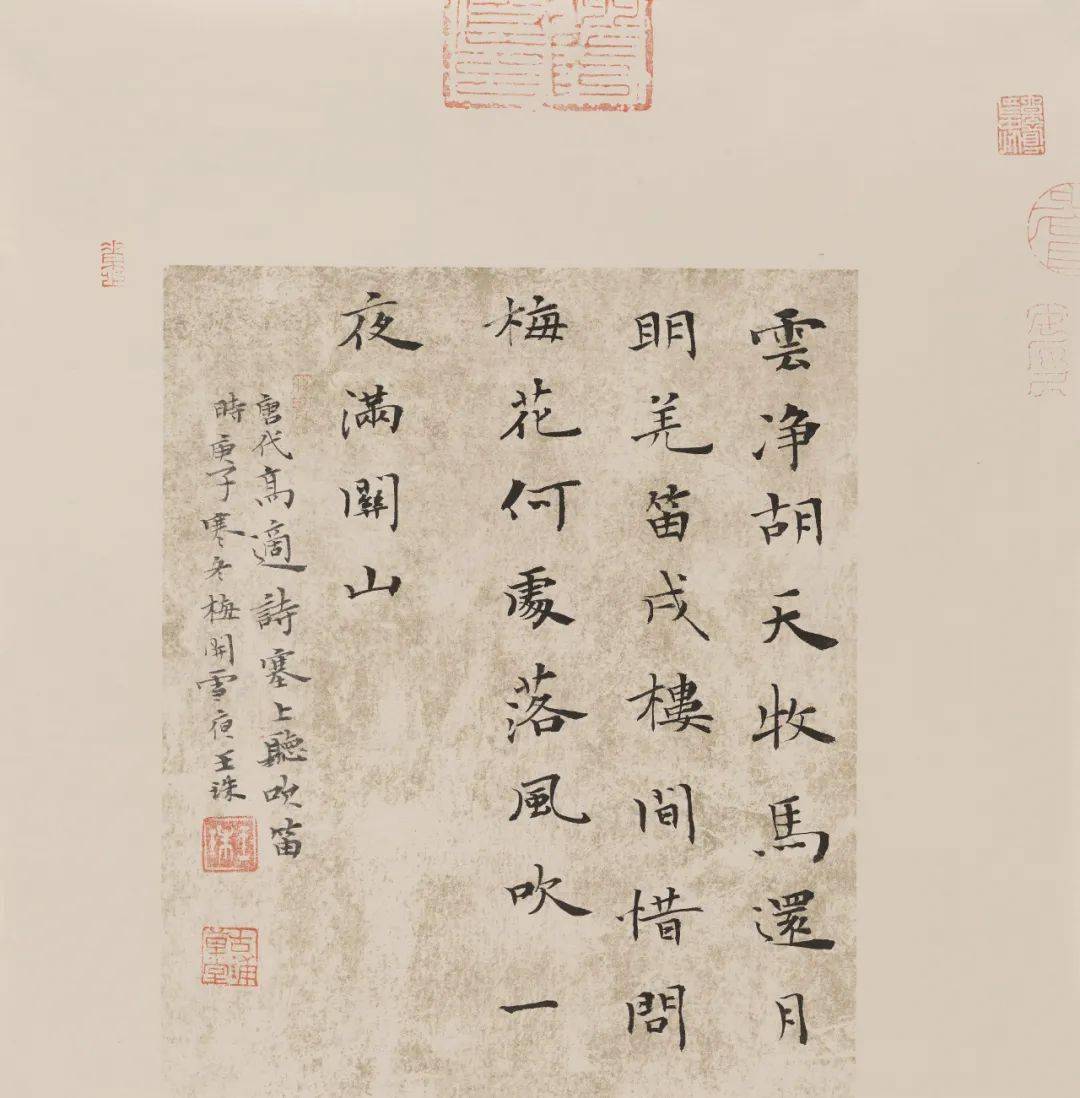 雲净胡天牧馬還月
明羌笛戍樓間惜問
梅花何處落風吹一
夜滿關山
唐代高適詩塞上聽吹笛
時庚子寒冬梅開雪夜王珠
王珠